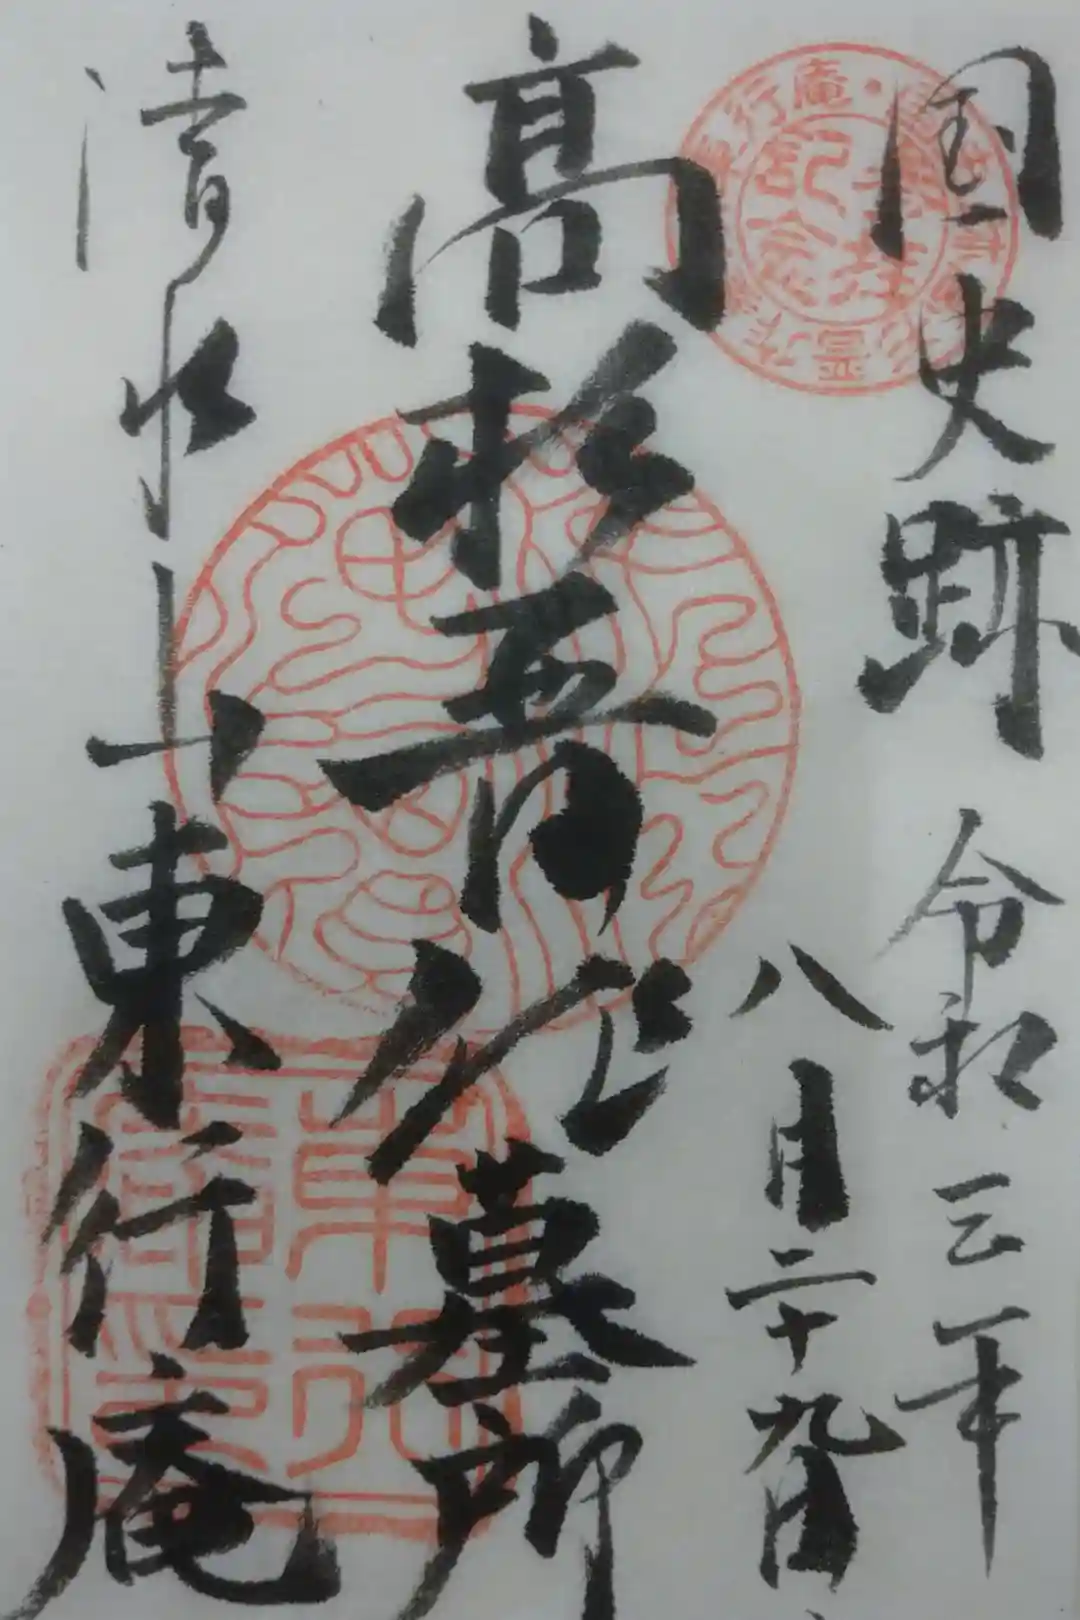 国史跡 令和三年
八月二十九日
高杉晋作墓所
清水山
東行庵
参拝記念